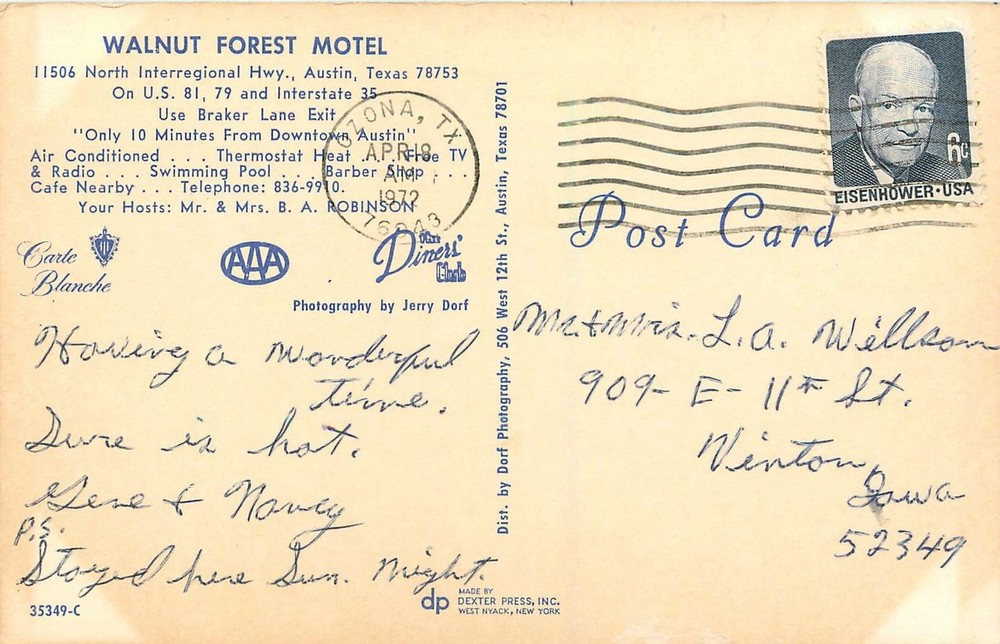 WALNUT FOREST MOTEL
11506 North Interregional Hwy., Austin, Texas 78753
On U.S. 81, 79 and Interstate 35
Use Braker Lane Exit
"Only 10 Minutes From Downtown Austin"
Air Conditioned . . . Thermostat Heat . . . Free TV
& Radio . . . Swimming Pool . . . Barber Shop . . .
Cafe Nearby . . . Telephone: 836-9910.
Your Hosts: Mr. & Mrs. B. A. ROBINSON
Carte
Blanche
AAA
The
Diners'
Club
Photography by Jerry Dorf
Having a wonderful
time.
Sure is hot.
Gene & Nancy
P.S.
Stayed here Sun. night.
35349-C
dp
MADE BY
DEXTER PRESS, INC.
WEST NYACK, NEW YORK
Dist. by Dorf Photography, 506 West 12th St., Austin, Texas 78701
OZONA, TX
APR 18
AM
1972
76943
6c
EISENHOWER·USA
Post Card
Mr. & Mrs. L. A. Willson
909- E- 11th St.
Vinton,
Iowa
52349